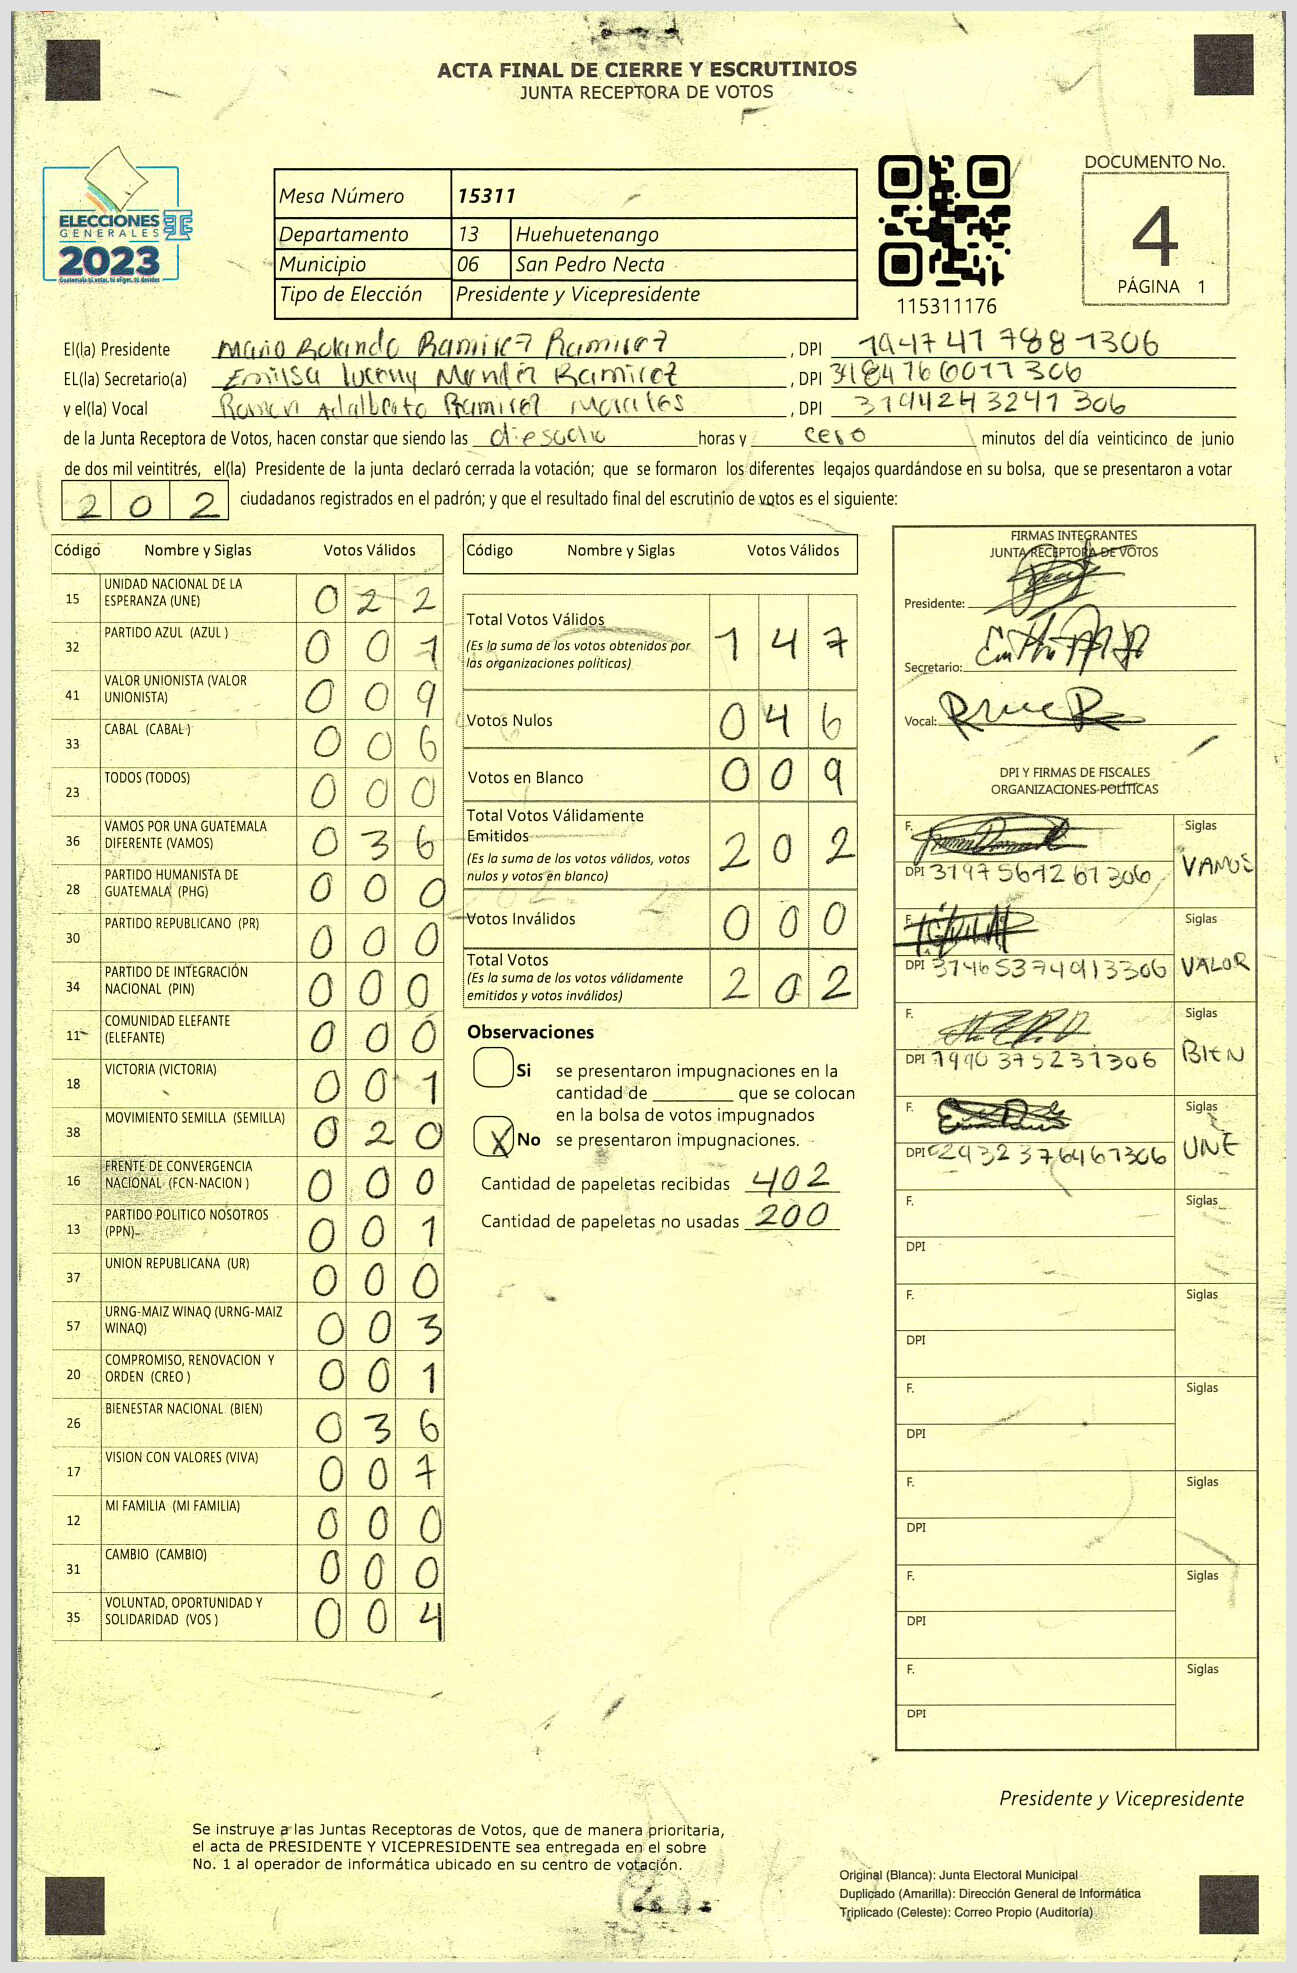 ACTA FINAL DE CIERRE Y ESCRUTINIOS
JUNTA RECEPTORA DE VOTOS
ELECCIONES
GENERALES
2023
Mesa Número 15311
Departamento 13 Huehuetenango
Municipio 06 San Pedro Necta
Tipo de Elección Presidente y Vicepresidente
115311176
DOCUMENTO No.
4
PÁGINA 1
El(la) Presidente Mario Rolando Ramirez Ramirez , DPI 1947417881306
EL(la) Secretario(a) Emilsa Mendez Ramirez , DPI 3184766011306
y el(la) Vocal Ramon Adalberto Ramirez Morales , DPI 3194243241306
de la Junta Receptora de Votos, hacen constar que siendo las diesocho horas y cero minutos del día veinticinco de junio
de dos mil veintitrés, el(la) Presidente de la junta declaró cerrada la votación; que se formaron los diferentes legajos guardándose en su bolsa, que se presentaron a votar
202 ciudadanos registrados en el padrón; y que el resultado final del escrutinio de votos es el siguiente:
Código Nombre y Siglas Votos Válidos
15 UNIDAD NACIONAL DE LA ESPERANZA (UNE) 022
32 PARTIDO AZUL (AZUL ) 001
41 VALOR UNIONISTA (VALOR UNIONISTA) 009
33 CABAL (CABAL ) 006
23 TODOS (TODOS) 000
36 VAMOS POR UNA GUATEMALA DIFERENTE (VAMOS) 036
28 PARTIDO HUMANISTA DE GUATEMALA (PHG) 000
30 PARTIDO REPUBLICANO (PR) 000
34 PARTIDO DE INTEGRACIÓN NACIONAL (PIN) 000
11 COMUNIDAD ELEFANTE (ELEFANTE) 000
18 VICTORIA (VICTORIA) 001
38 MOVIMIENTO SEMILLA (SEMILLA) 020
16 FRENTE DE CONVERGENCIA NACIONAL (FCN-NACION ) 000
13 PARTIDO POLITICO NOSOTROS (PPN) 001
37 UNION REPUBLICANA (UR) 000
57 URNG-MAIZ WINAQ (URNG-MAIZ WINAQ) 003
20 COMPROMISO, RENOVACION Y ORDEN (CREO ) 001
26 BIENESTAR NACIONAL (BIEN) 036
17 VISION CON VALORES (VIVA) 007
12 MI FAMILIA (MI FAMILIA) 000
31 CAMBIO (CAMBIO) 000
35 VOLUNTAD, OPORTUNIDAD Y SOLIDARIDAD (VOS ) 004
Código Nombre y Siglas Votos Válidos
Total Votos Válidos 147
(Es la suma de los votos obtenidos por
las organizaciones políticas)
Votos Nulos 046
Votos en Blanco 009
Total Votos Válidamente
Emitidos 202
(Es la suma de los votos válidos, votos
nulos y votos en blanco)
Votos Inválidos 000
Total Votos 202
(Es la suma de los votos válidamente
emitidos y votos inválidos)
Observaciones
Si se presentaron impugnaciones en la
cantidad de ________ que se colocan
en la bolsa de votos impugnados
X No se presentaron impugnaciones.
Cantidad de papeletas recibidas 402
Cantidad de papeletas no usadas 200
FIRMAS INTEGRANTES
JUNTA RECEPTORA DE VOTOS
Presidente:
Secretario:
Vocal:
DPI Y FIRMAS DE FISCALES
ORGANIZACIONES POLÍTICAS
F. Siglas
DPI 3197561261306 VAMOS
F. Siglas
DPI 31465374913306 VALOR
F. Siglas
DPI 1990375231306 BIEN
F. Siglas
DPI 2432376461306 UNE
F. Siglas
DPI
F. Siglas
DPI
F. Siglas
DPI
F. Siglas
DPI
F. Siglas
DPI
F. Siglas
DPI
Presidente y Vicepresidente
Se instruye a las Juntas Receptoras de Votos, que de manera prioritaria,
el acta de PRESIDENTE Y VICEPRESIDENTE sea entregada en el sobre
No. 1 al operador de informática ubicado en su centro de votación.
Original (Blanca): Junta Electoral Municipal
Duplicado (Amarilla): Dirección General de Informática
Triplicado (Celeste): Correo Propio (Auditoría)